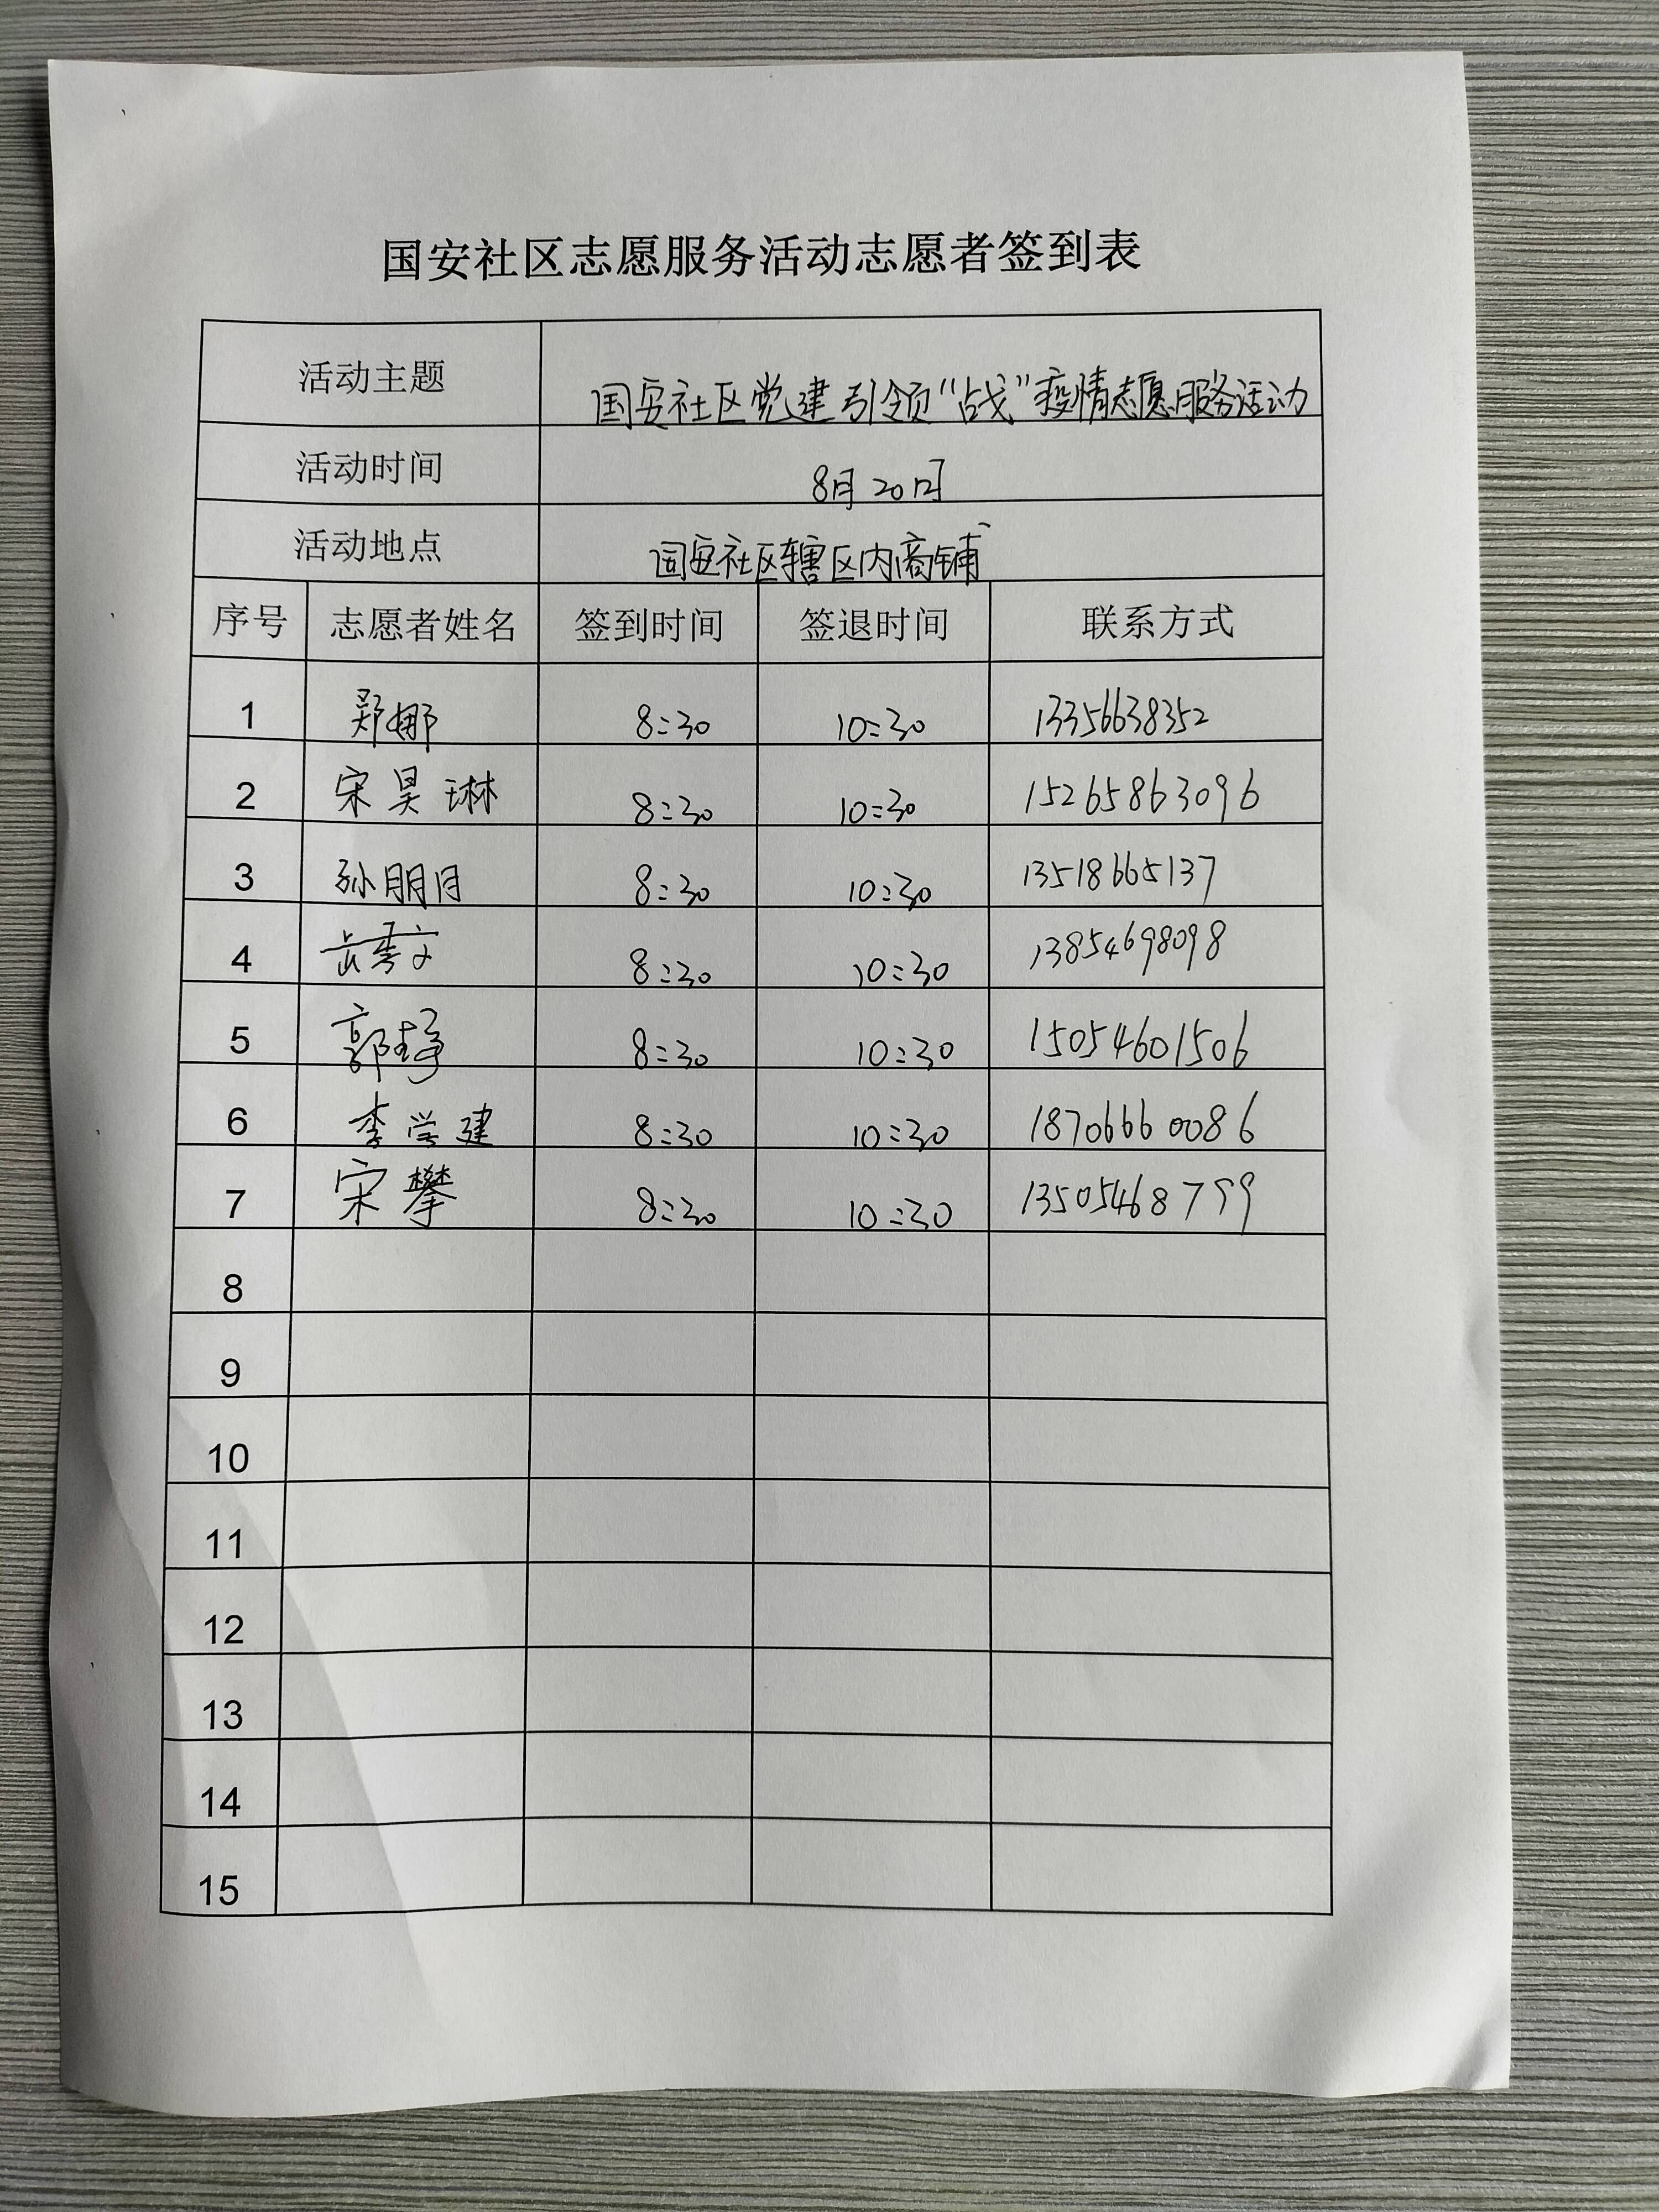 国安社区志愿服务活动志愿者签到表
活动主题 国安社区党建引领“战”疫情志愿服务活动
活动时间 8月20日
活动地点 国安社区辖区内商铺
序号 志愿者姓名 签到时间 签退时间 联系方式
1 郑娜 8:30 10:30 13356638352
2 宋昊琳 8:30 10:30 15265863096
3 孙朋月 8:30 10:30 13518665137
4 8:30 10:30 13854698098
5 郭峥 8:30 10:30 15054601506
6 李学建 8:30 10:30 18706660086
7 宋攀 8:30 10:30 13505468799
8
9
10
11
12
13
14
15